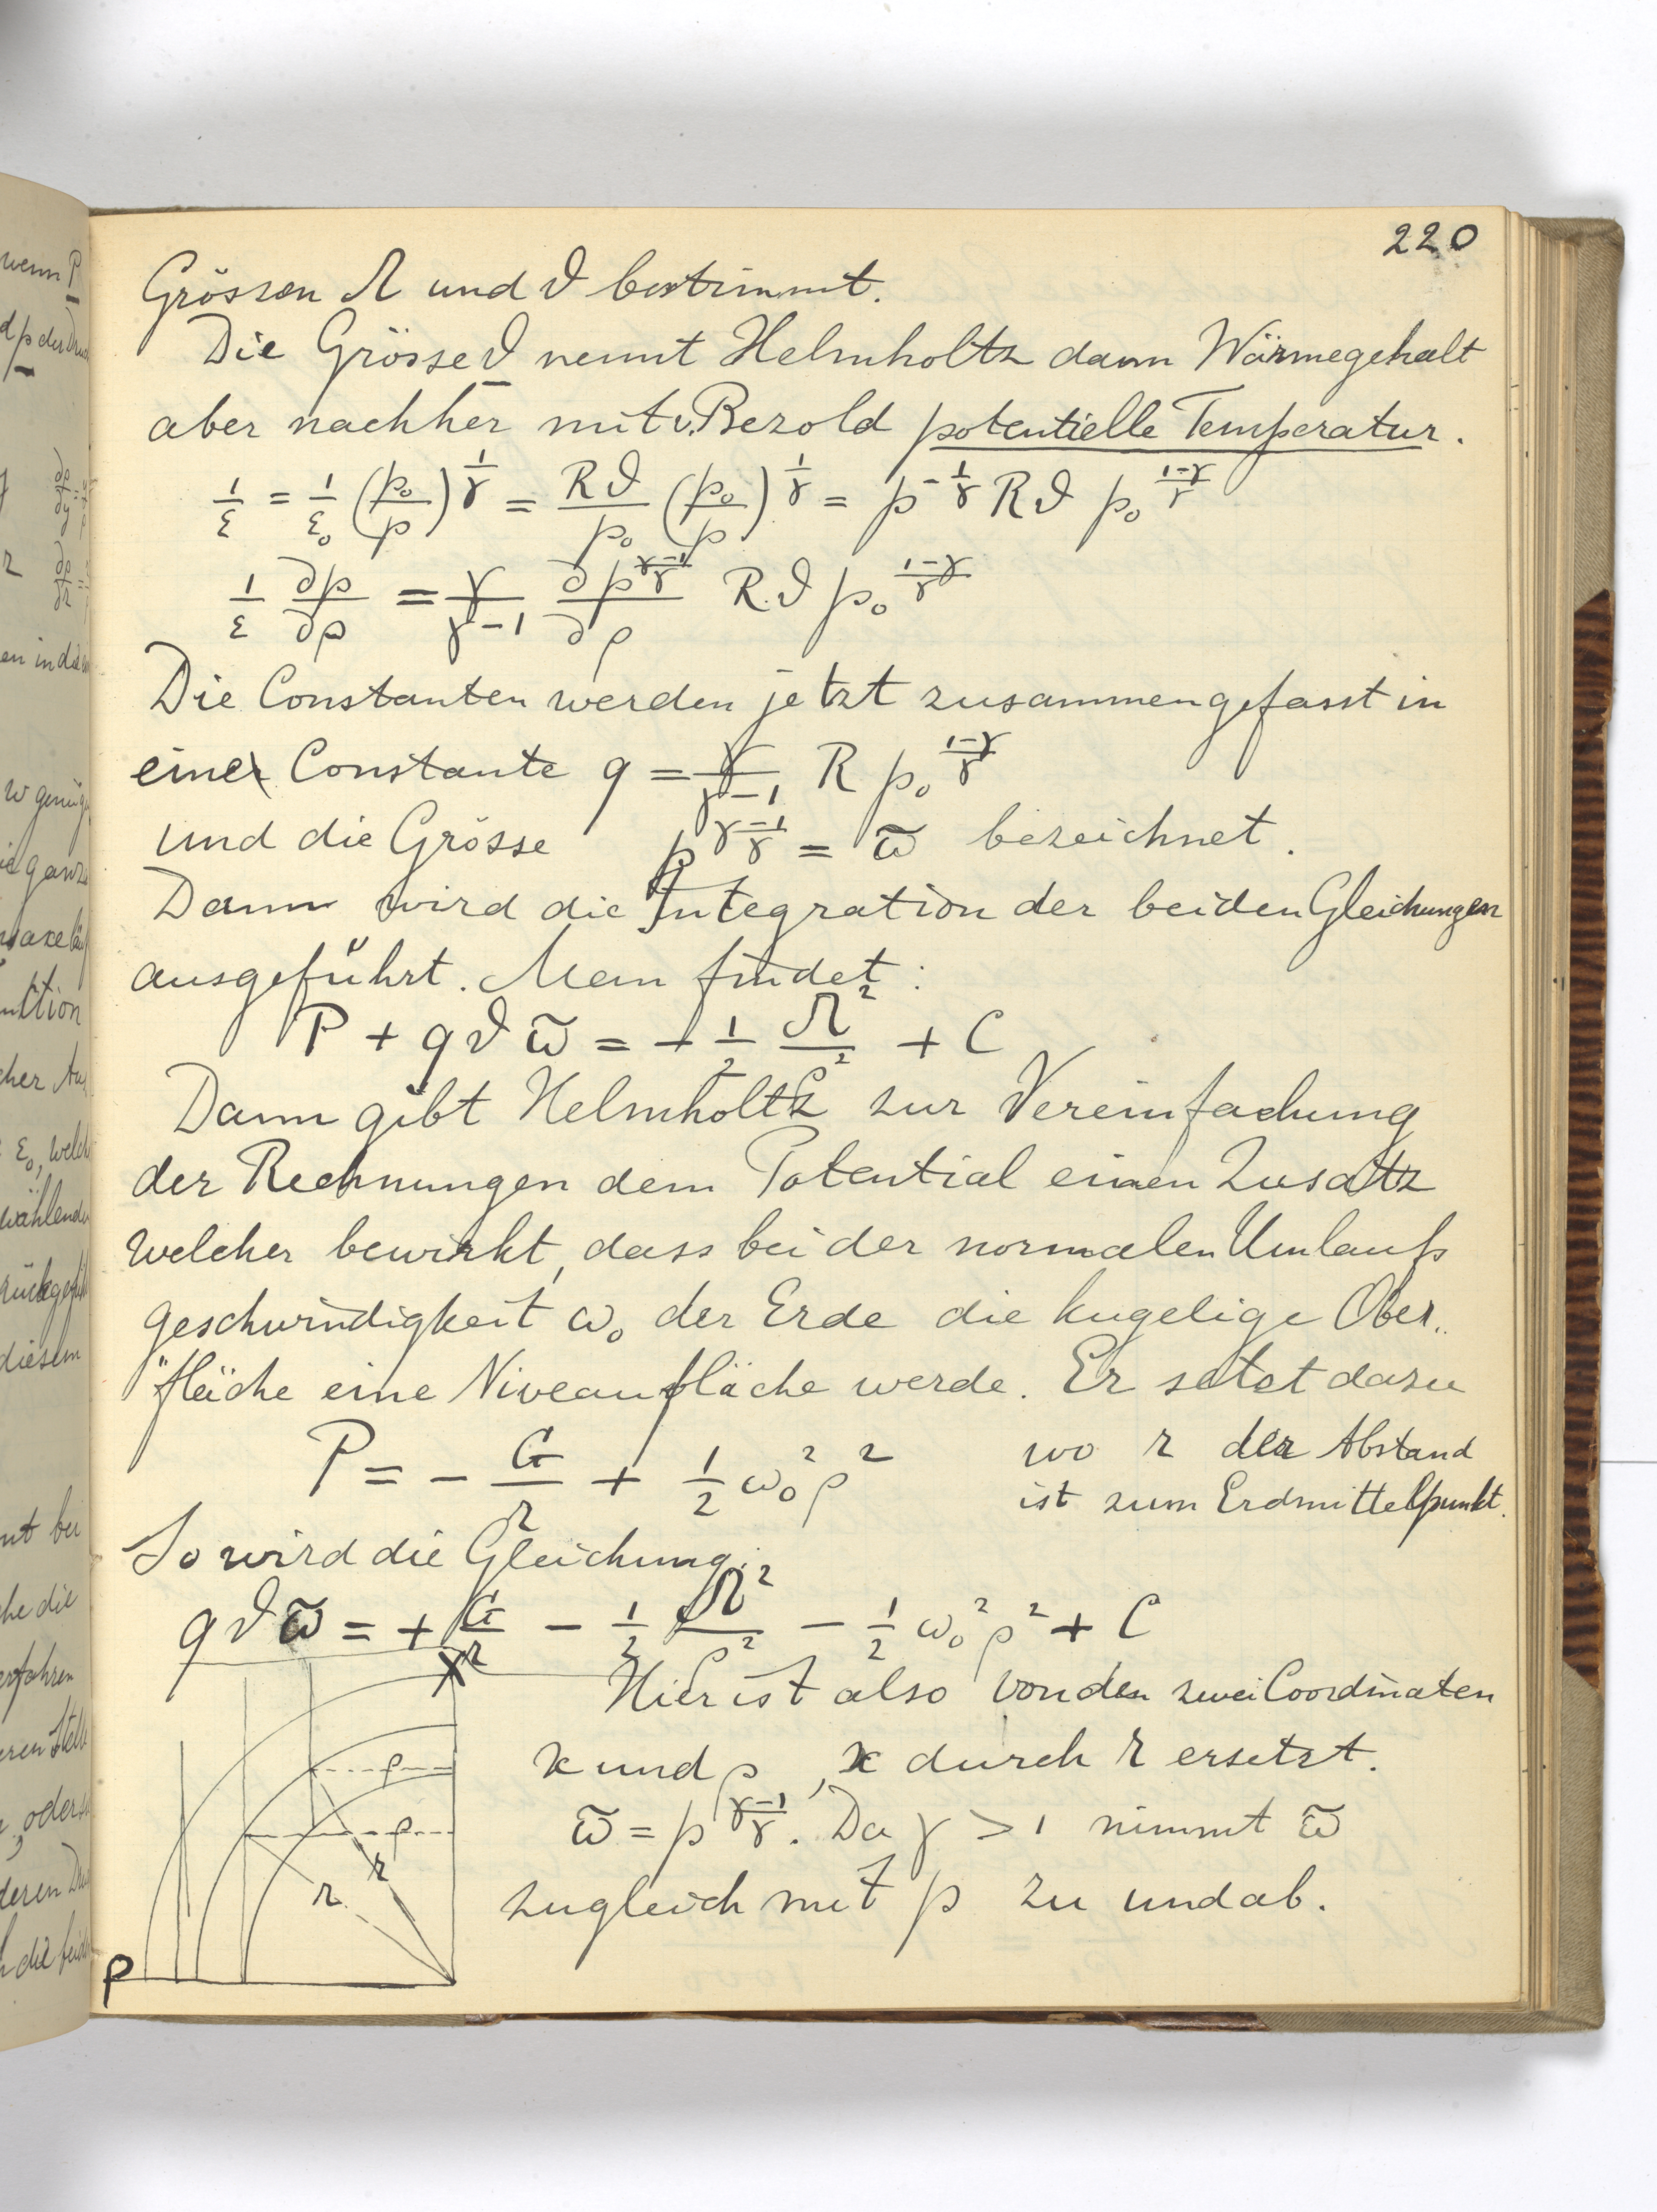 220
Grössen Ω und ϑ bestimmt.
Die Grösse ϑ nennt Helmholtz dann Wärmegehalt
aber nachher mit v. Bezold potentielle Temperatur.
1/ε = 1/ε₀ (p₀/p)^(1/γ) = Rϑ/p₀ (p₀/p)^(1/γ) = p^(-1/γ) Rϑ p₀^((1-γ)/γ)
1/ε ∂p/∂ρ = γ/(γ-1) ∂p^((γ-1)/γ)/∂ρ R.ϑ p₀^((1-γ)/γ)
Die Constanten werden jetzt zusammengefasst in
eine Constante q = γ/(γ-1) R p₀^((1-γ)/γ)
und die Grösse p^((γ-1)/γ) = ϖ bezeichnet.
Dann wird die Integration der beiden Gleichungen
ausgeführt. Man findet:
P + qϑϖ = -1/2 Ω²/ρ² + C
Dann gibt Helmholtz zur Vereinfachung
der Rechnungen dem Potential einen Zusatz
welcher bewirkt, dass bei der normalen Umlaufs
geschwindigkeit ω₀ der Erde die kugelige Ober„
"fläche eine Niveaufläche werde. Er setzt dazu
P = - G/r + 1/2 ω₀² ρ² wo r der Abstand
ist zum Erdmittelpunkt.
So wird die Gleichung:
qϑϖ = + G/r - 1/2 Ω²/ρ² - 1/2 ω₀² ρ² + C
Hier ist also von den zwei Coordinaten
x und ρ, x durch r ersetzt.
ϖ = p^((γ-1)/γ). Da γ > 1 nimmt ϖ
zugleich mit p zu und ab.
x
ρ
ρ
r
r
ρ